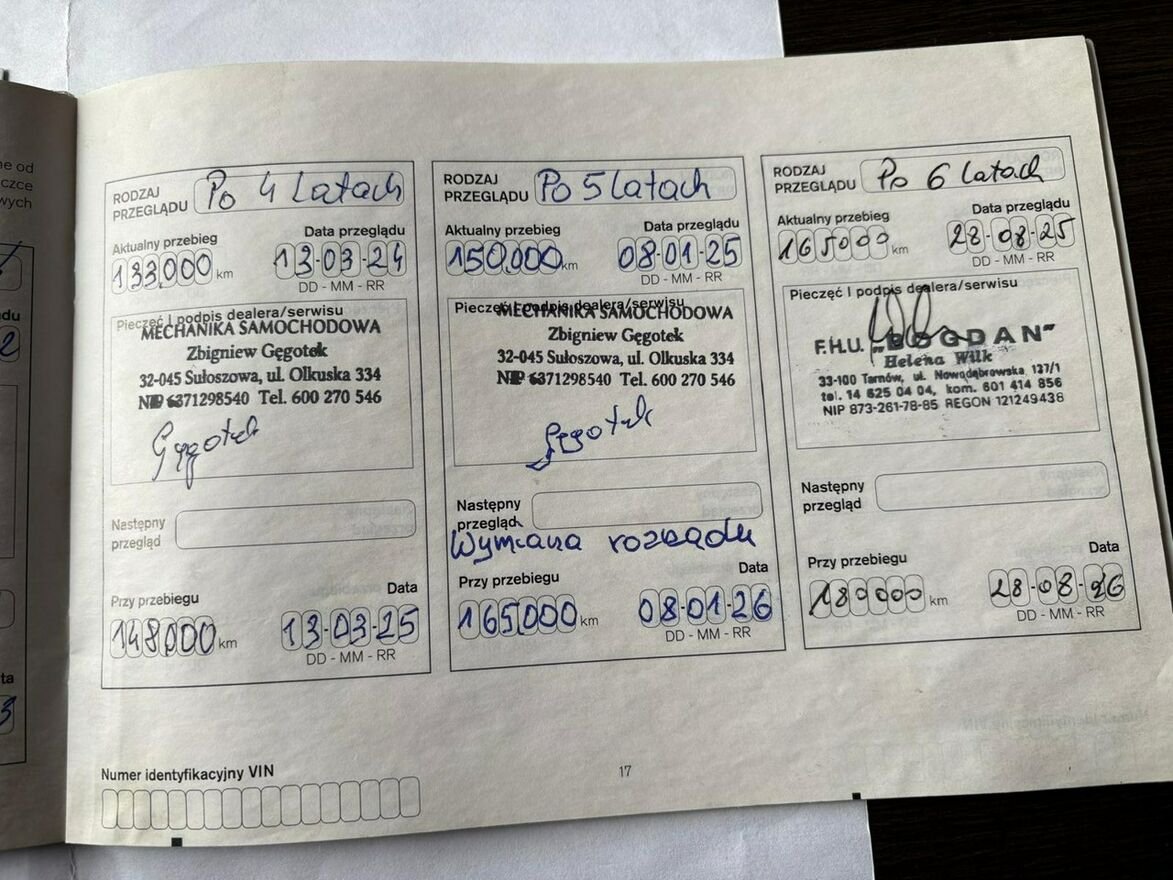 ne od
czce
wych
du
2
ta
3
RODZAJ PRZEGLĄDU Po 4 Latach
Aktualny przebieg Data przeglądu
133,000 km 13-03-24
DD - MM - RR
Pieczęć i podpis dealera/serwisu
MECHANIKA SAMOCHODOWA
Zbigniew Gęgotek
32-045 Sułoszowa, ul. Olkuska 334
NIP 6371298540 Tel. 600 270 546
Gęgotek
Następny przegląd
Przy przebiegu Data
148,000 km 13-03-25
DD - MM - RR
RODZAJ PRZEGLĄDU Po 5 latach
Aktualny przebieg Data przeglądu
150,000 km 08-01-25
DD - MM - RR
Pieczęć i podpis dealera/serwisu
MECHANIKA SAMOCHODOWA
Zbigniew Gęgotek
32-045 Sułoszowa, ul. Olkuska 334
NIP 6371298540 Tel. 600 270 546
Gęgotek
Następny przegląd
Wymiana rozrządu
Przy przebiegu Data
165,000 km 08-01-26
DD - MM - RR
RODZAJ PRZEGLĄDU Po 6 latach
Aktualny przebieg Data przeglądu
165000 km 28-08-25
DD - MM - RR
Pieczęć i podpis dealera/serwisu
F.H.U. „BOGDAN"
Helena Wilk
33-100 Tarnów, ul. Nowodąbrowska 137/1
tel. 14 625 04 04, kom. 601 414 856
NIP 873-261-78-85 REGON 121249438
Następny przegląd
Przy przebiegu Data
180000 km 28-08-26
DD - MM - RR
Numer identyfikacyjny VIN
17